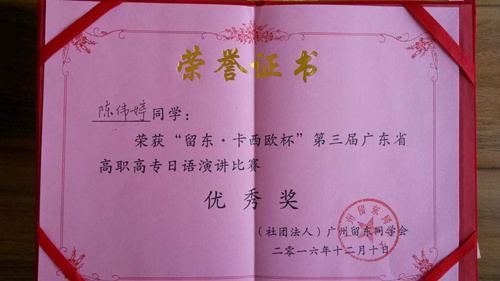 荣誉证书
陈伟婷同学：
荣获“留东·卡西欧杯”第三届广东省
高职高专日语演讲比赛
优秀奖
（社团法人）广州留东同学会
二零一六年十二月十日